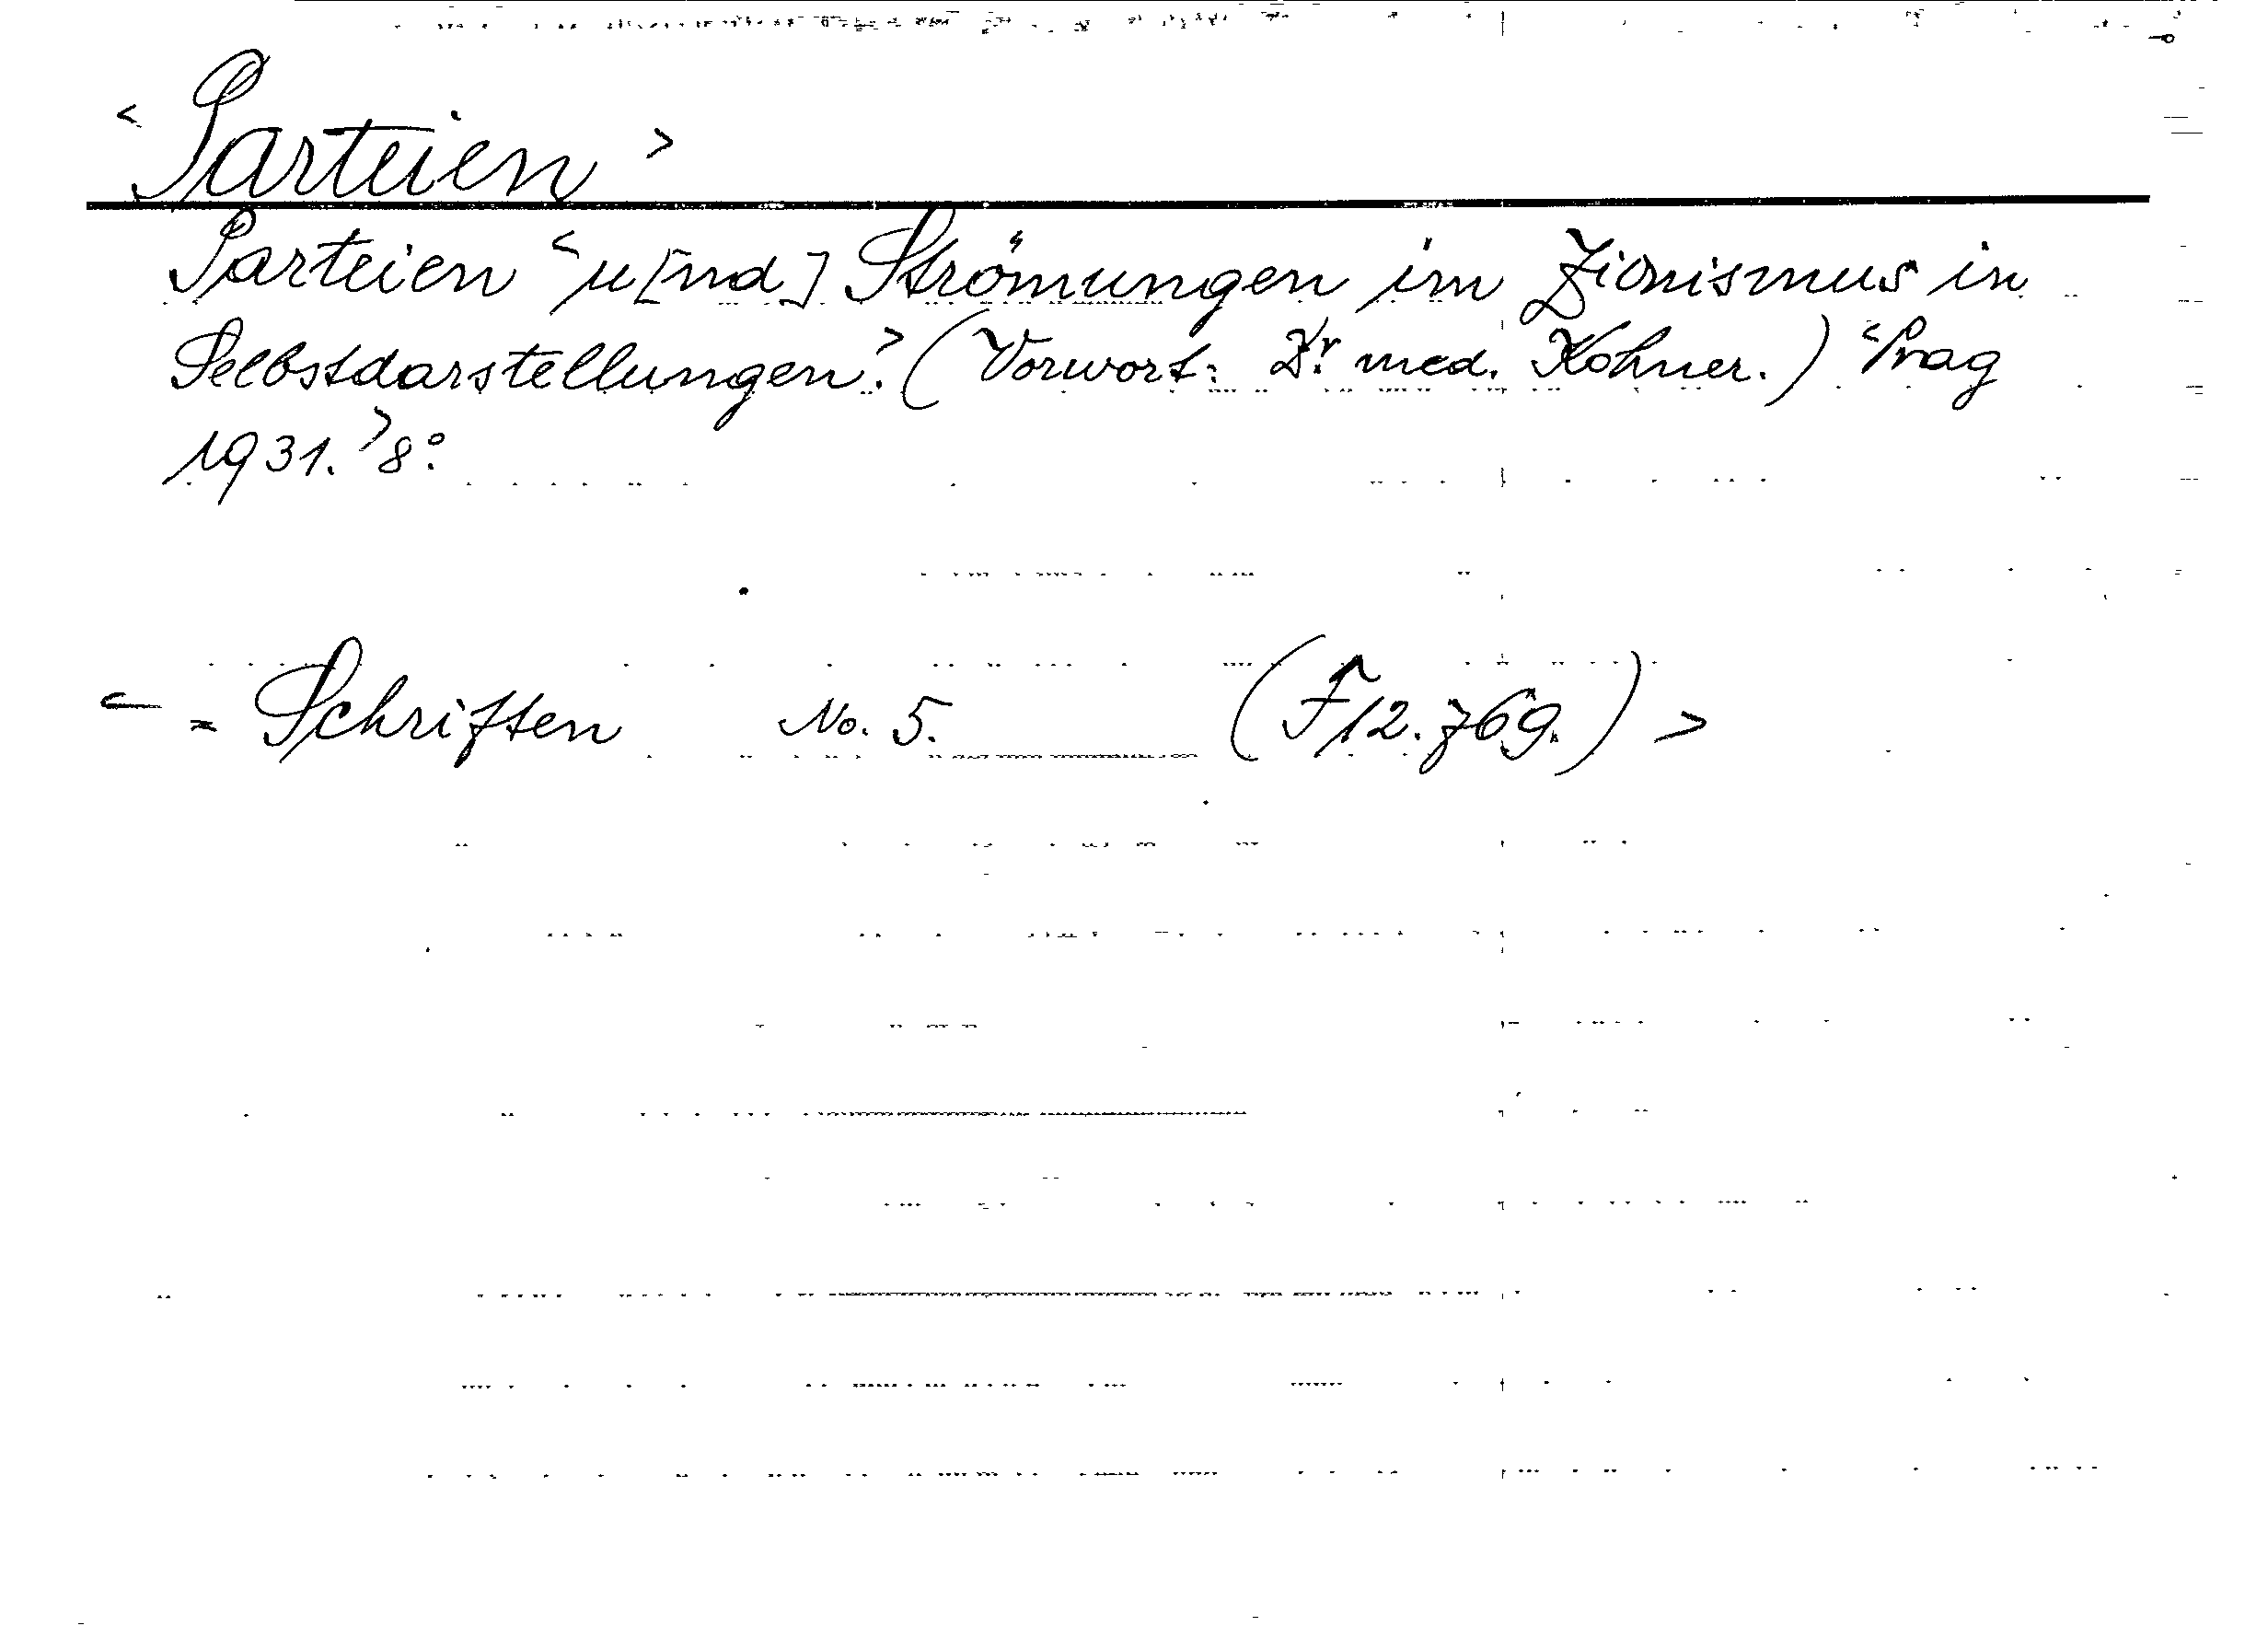 <Parteien>
Parteien <u[nd] Strömungen im Zionismus in
Selbstdarstellungen.> (Vorwort: Dr. med. Kohner.) <Prag
1931.> 8°.
< = Schriften No. 5. (F12.769.) >